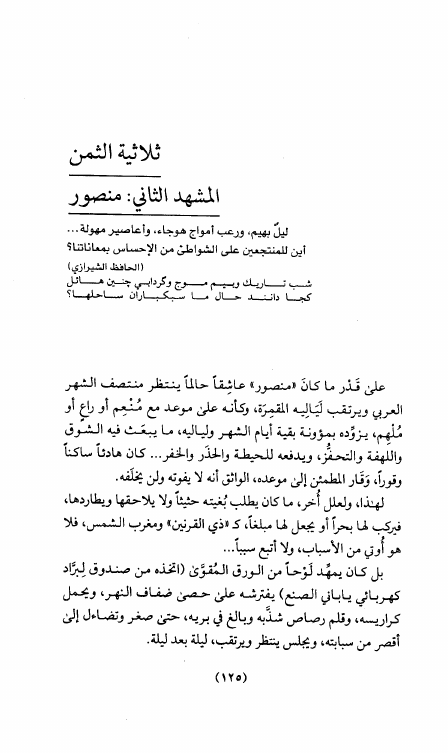 ثلاثية الثمن
المشهد الثاني: منصور
ليلٌ بهيم، ورعب أمواج هوجاء، وأعاصير مهولة...
أين للمنتجعين على الشواطئ من الإحساس بمعاناتنا؟
(الحافظ الشيرازي)
شب تـاريك وبيـم مـوج وگردابي چنين هـائل
كجا دانند حال ما سبكباران ساحلها؟
على قَدْر ما كانَ «منصور» عاشِقاً حالماً ينتظر منتصف الشهر
العربي ويرتقب لَيَالِيه المقمِرَة، وكأنه على موعد مع مُنْعِم أو راعٍ أو
مُلْهِم، يزوِّده بمؤونة بقية أيام الشهر ولياليه، ما يبعَث فيه الشوق
واللهفة والتحفُّز، ويدفعه للحيطة والحذَر والخفر... كان هادئاً ساكناً
وقوراً، وَقَار المطمئن إلى موعده، الواثق أنه لا يفوته ولن يخلَفه.
لهذا، ولعلل أُخر، ما كان يطلب بُغيته حثيثاً ولا يلاحقها ويطاردها،
فيركب لها بحراً أو يجعل لها مبلغاً، كـ «ذي القرنين» ومغرب الشمس، فلا
هو أُوتي من الأسباب، ولا أتبع سبباً...
بل كان يمهِّد لَوْحاً من الورق المُقوَّىٰ (اتخذه من صندوق لبرَّاد
كهربائي ياباني الصنع) يفترشه على حصىٰ ضفاف النهر، ويحمل
كراريسه، وقلم رصاص شذَّبه وبالغ في بريه، حتىٰ صغر وتضاءل إلىٰ
أقصر من سبابته، ويجلس ينتظر ويرتقب، ليلة بعد ليلة.
(١٢٥)